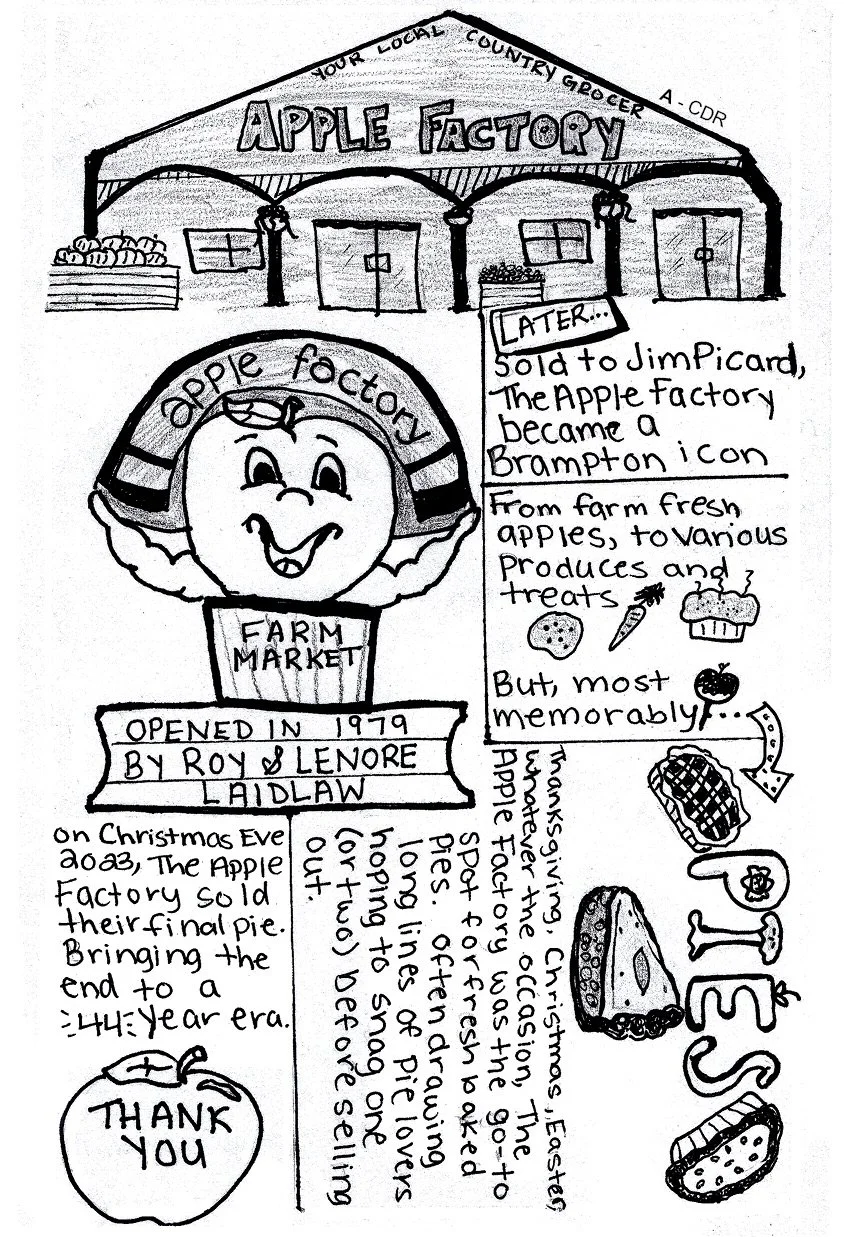 YOUR LOCAL COUNTRY GROCER
A-CDR
APPLE FACTORY
apple factory
FARM
MARKET
OPENED IN 1979
BY ROY & LENORE
LAIDLAW
LATER...
Sold to Jim Picard,
The Apple Factory
became a
Brampton icon
From farm fresh
apples, to various
produces and
treats
But, most
memorably...
PIES
Thanksgiving, Christmas, Easter,
whatever the occasion, The
Apple Factory was the go-to
spot for fresh baked
pies. Often drawing
long lines of pie lovers
hoping to snag one
(or two) before selling
out.
on Christmas Eve
2023, The Apple
Factory sold
their final pie.
Bringing the
end to a
44 year era.
THANK
YOU